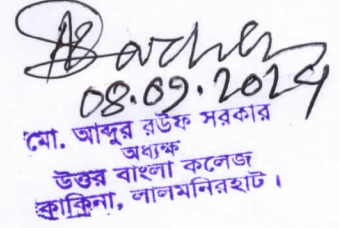 08.09.2024
মো. আব্দুর রউফ সরকার
অধ্যক্ষ
উত্তর বাংলা কলেজ
কাকিনা, লালমনিরহাট।